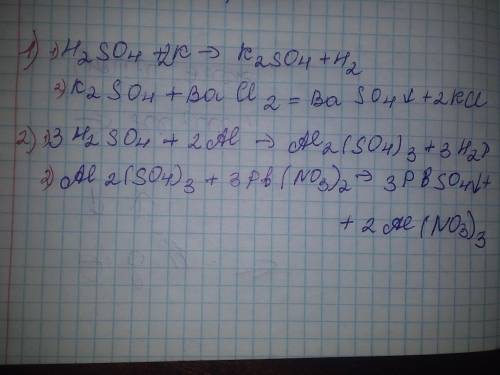 1) 1) H2SO4 + 2K → K2SO4 + H2
2) K2SO4 + BaCl2 = BaSO4↓ + 2KCl
2) 1) 3H2SO4 + 2Al → Al2(SO4)3 + 3H2↑
2) Al2(SO4)3 + 3Pb(NO3)2 → 3PbSO4↓+
+ 2Al(NO3)3